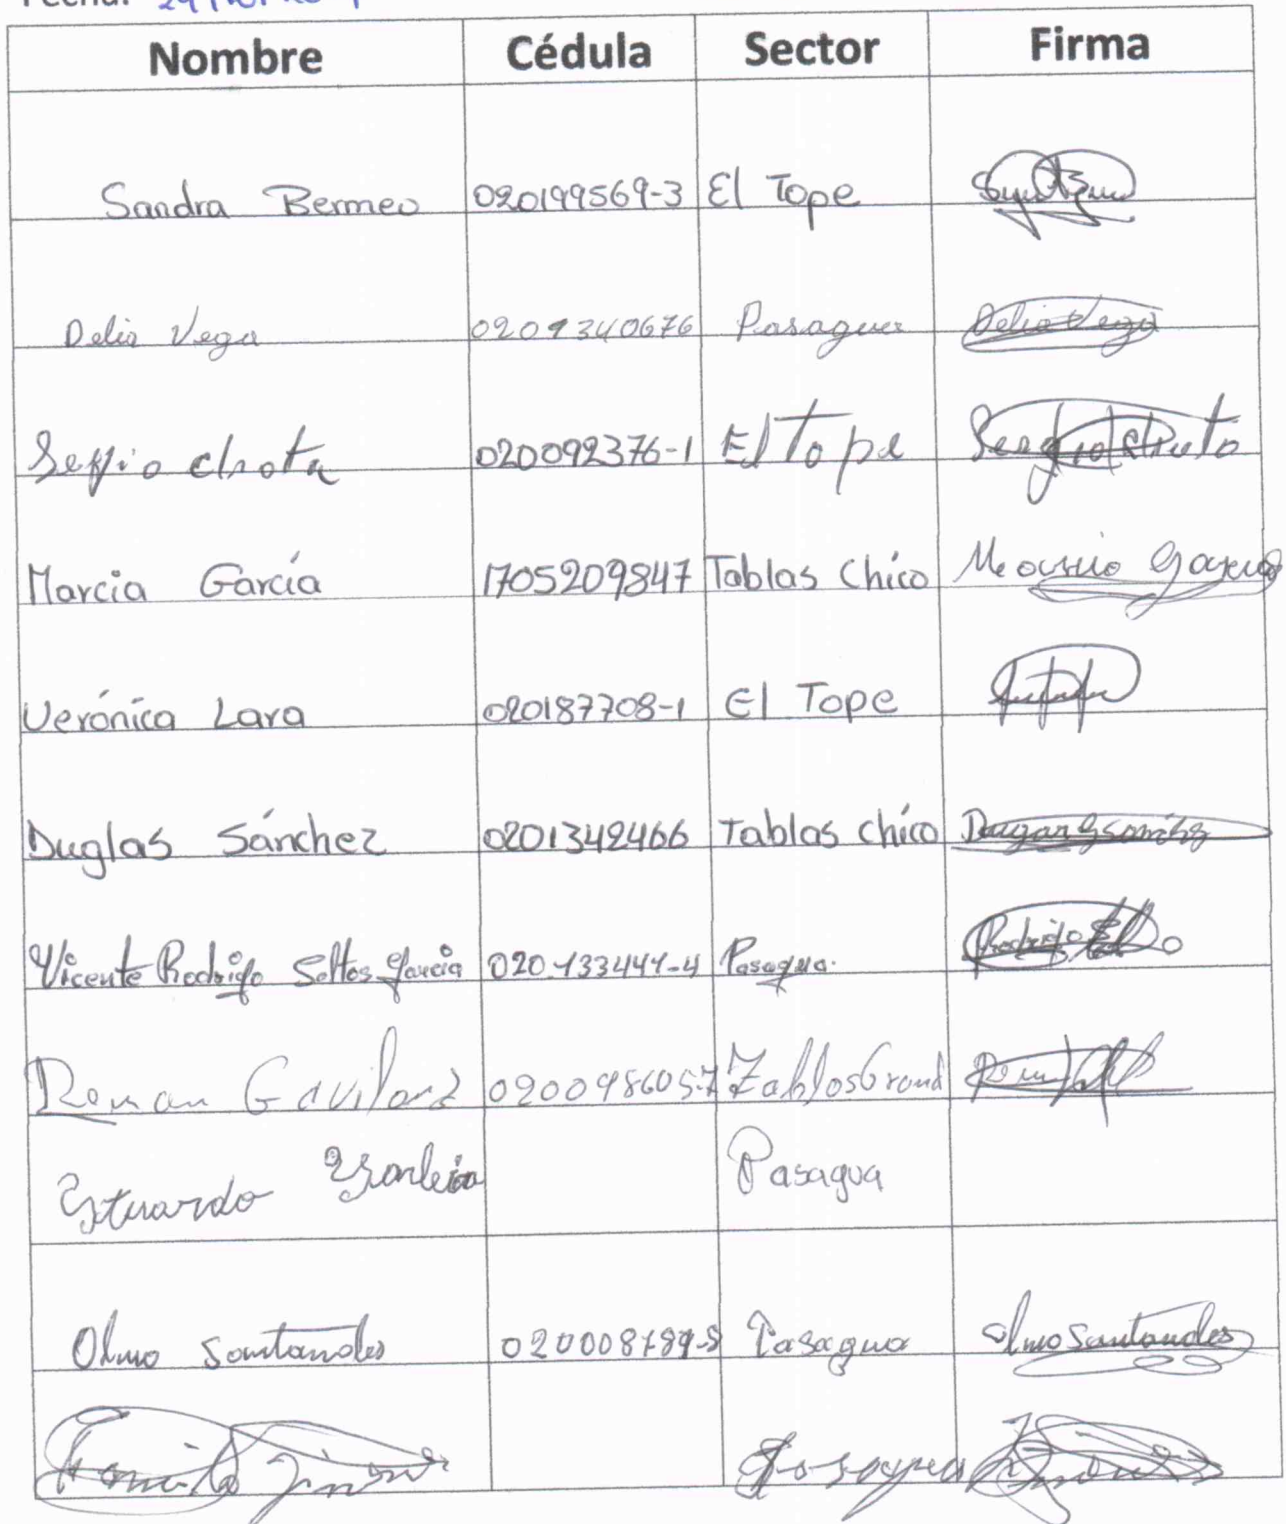 Fecha:
Nombre Cédula Sector Firma
Sandra Bermeo 020199569-3 El Tope
Delia Vega 0201340676 Pasagua Delia Vega
Sergio chota 020092376-1 El Tope Sergio
Marcia García 1705209847 Tablas Chico
Verónica Lara 020187708-1 El Tope
Duglas Sánchez 0201342466 Tablas chico
Vicente Rodrigo Soltos García 020133441-4 Pasagua. Rodrigo
Roman Gavilan 020098605-7 Tablas Grand
Estuardo Pasagua
Olmo Santander Pasagua Olmo Santander